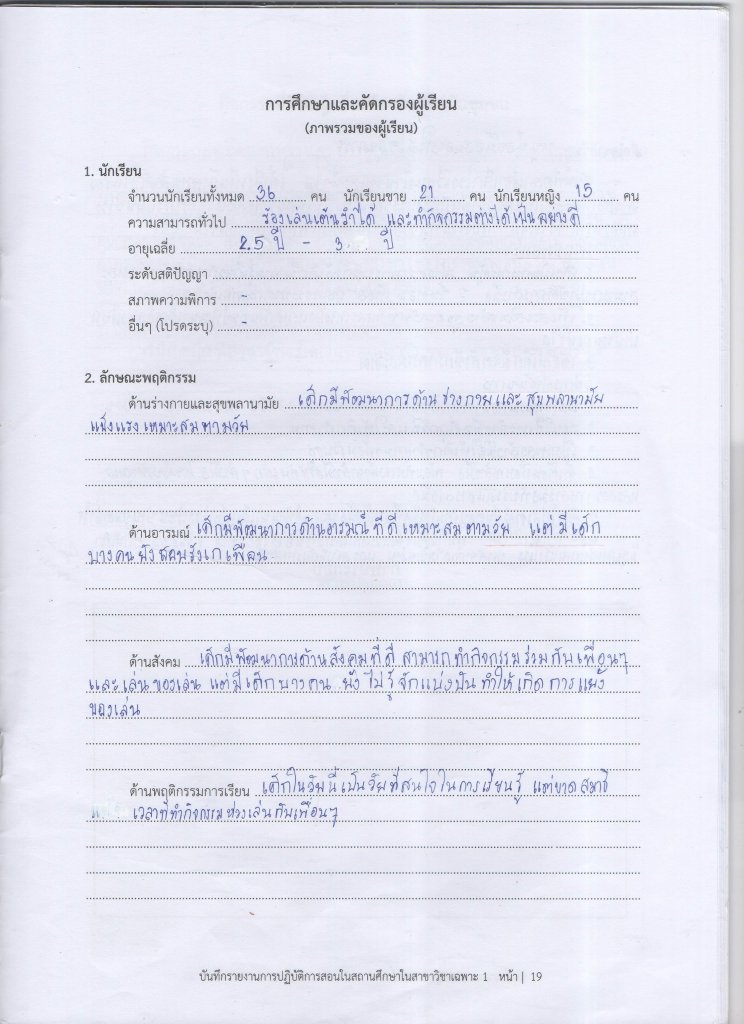 การศึกษาและคัดกรองผู้เรียน
(ภาพรวมของผู้เรียน)
1. นักเรียน
จำนวนนักเรียนทั้งหมด 36 คน นักเรียนชาย 21 คน นักเรียนหญิง 15 คน
ความสามารถทั่วไป ร้องเล่นเต้นรำได้ และทำกิจกรรมต่างได้เป็นอย่างดี
อายุเฉลี่ย 2.5 ปี - 3 ปี
ระดับสติปัญญา
สภาพความพิการ -
อื่นๆ (โปรดระบุ) -
2. ลักษณะพฤติกรรม
ด้านร่างกายและสุขพลานามัย เด็กมีพัฒนาการด้านร่างกายและสุขพลานามัย
แข็งแรง เหมาะสมตามวัย
ด้านอารมณ์ เด็กมีพัฒนาการด้านอารมณ์ ที่ดีเหมาะสมตามวัย แต่มีเด็ก
บางคนยังชอบรังแกเพื่อน
ด้านสังคม เด็กมีพัฒนาการด้านสังคมที่ดี สามารถทำกิจกรรมร่วมกับเพื่อนๆ
และเล่นของเล่น แต่มีเด็กบางคน ยังไม่รู้จักแบ่งปัน ทำให้เกิดการแย่ง
ของเล่น
ด้านพฤติกรรมการเรียน เด็กในวัยนี้เป็นวัยที่สนใจในการเรียนรู้ แต่ขาดสมาธิ
เวลาที่ทำกิจกรรม ห่วงเล่นกับเพื่อนๆ
บันทึกรายงานการปฏิบัติการสอนในสถานศึกษาในสาขาวิชาเฉพาะ 1 หน้า | 19